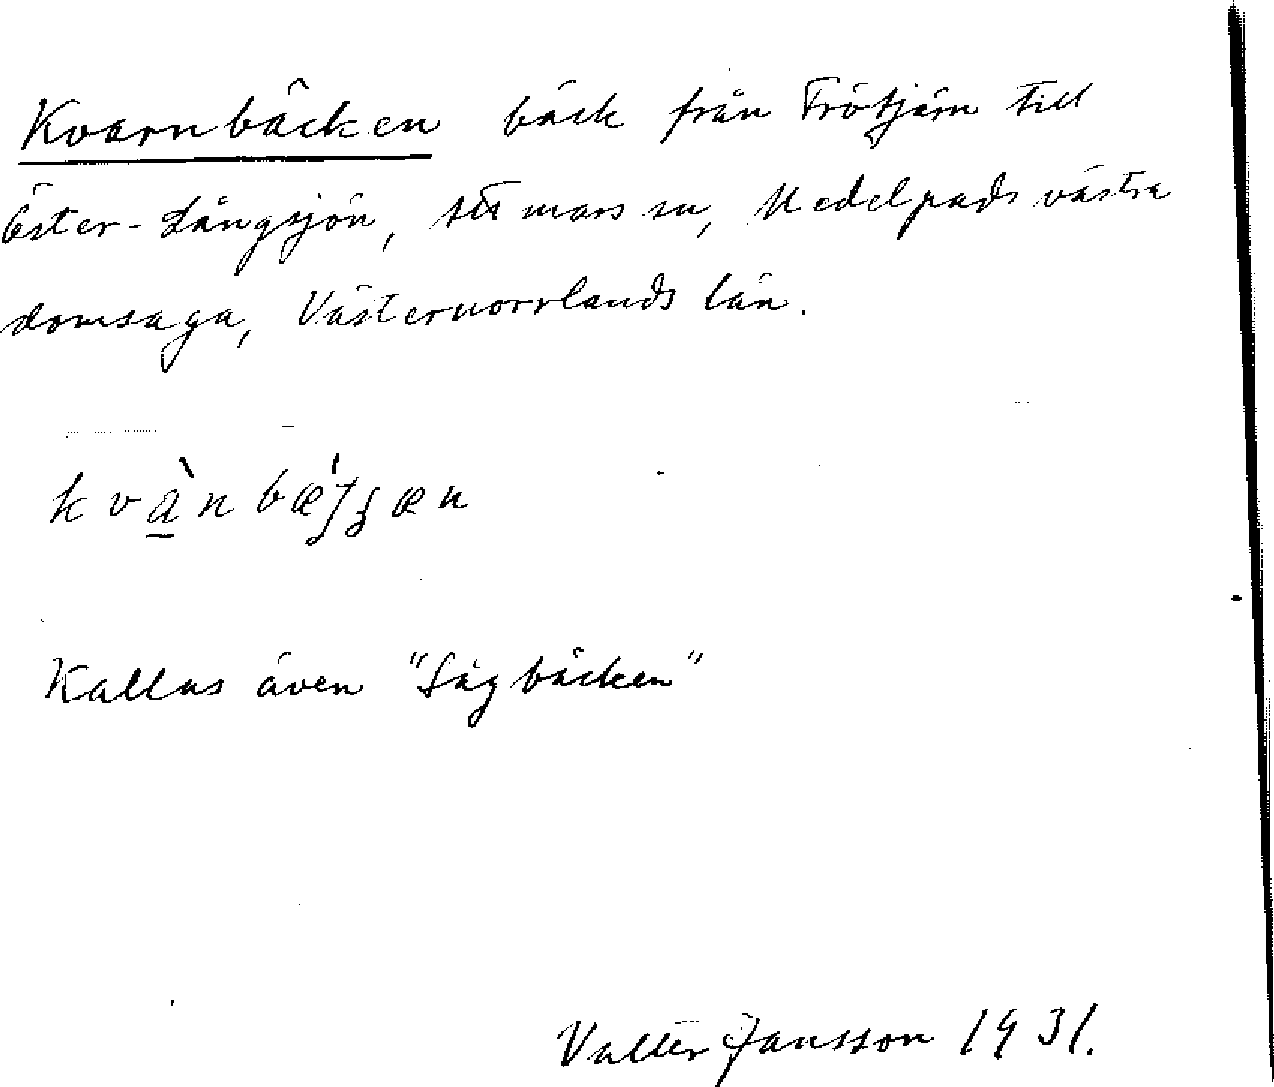 Kvarnbäcken bäck från Frötjärn till
Öster-Långsjön, Attmars sn, Medelpads västra
domsaga, Västernorrlands län.
Kallas även "Sågbäcken"
Valter Jansson 1931.